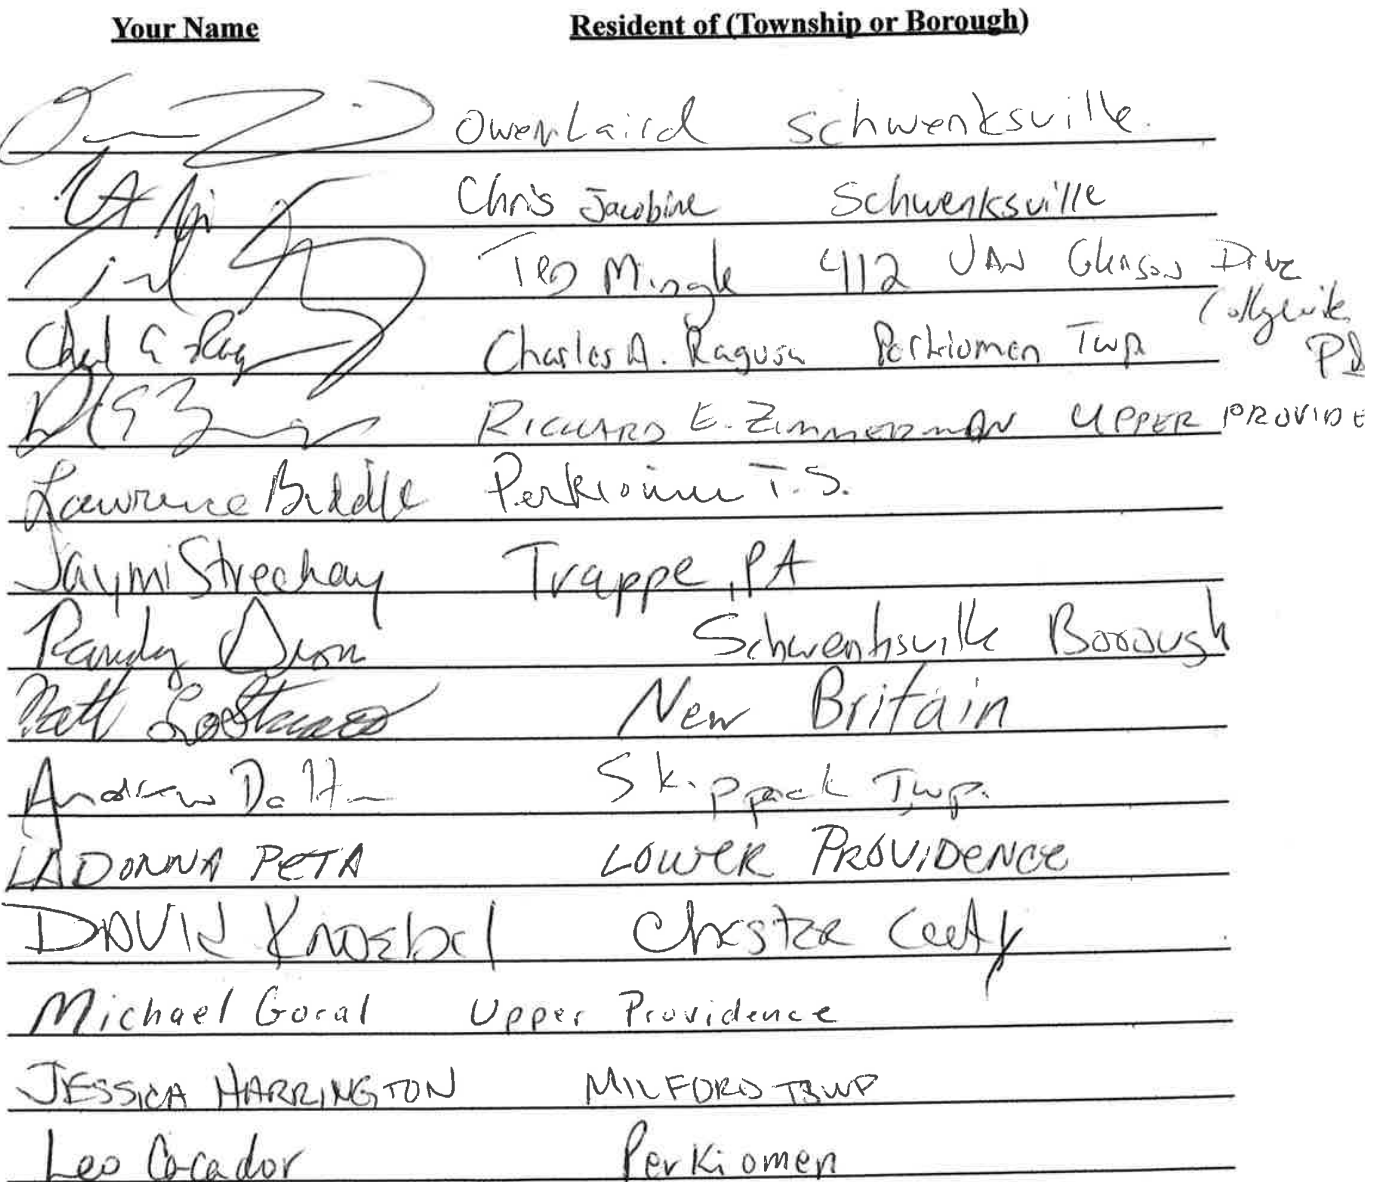 Your Name Resident of (Township or Borough)
Owen Laird Schwenksville.
Chris Jacobine Schwenksville
Ted Mingle 412 Van Drive
Collegeville PA
Charles A. Ragusa Perkiomen Twp
RICHARD E. ZIMMERMAN UPPER PROVIDE
Lawrence Biddle Perkiomen T.S.
Jaymi Strechay Trappe, PA
Randy Schwenksville Borough
Matt New Britain
Andrew Skippack Twp.
LADONNA PETA LOWER PROVIDENCE
DAVID Knoebel Chester
Michael Goral Upper Providence
JESSICA HARRINGTON MILFORD
Leo Cocador Perkiomen